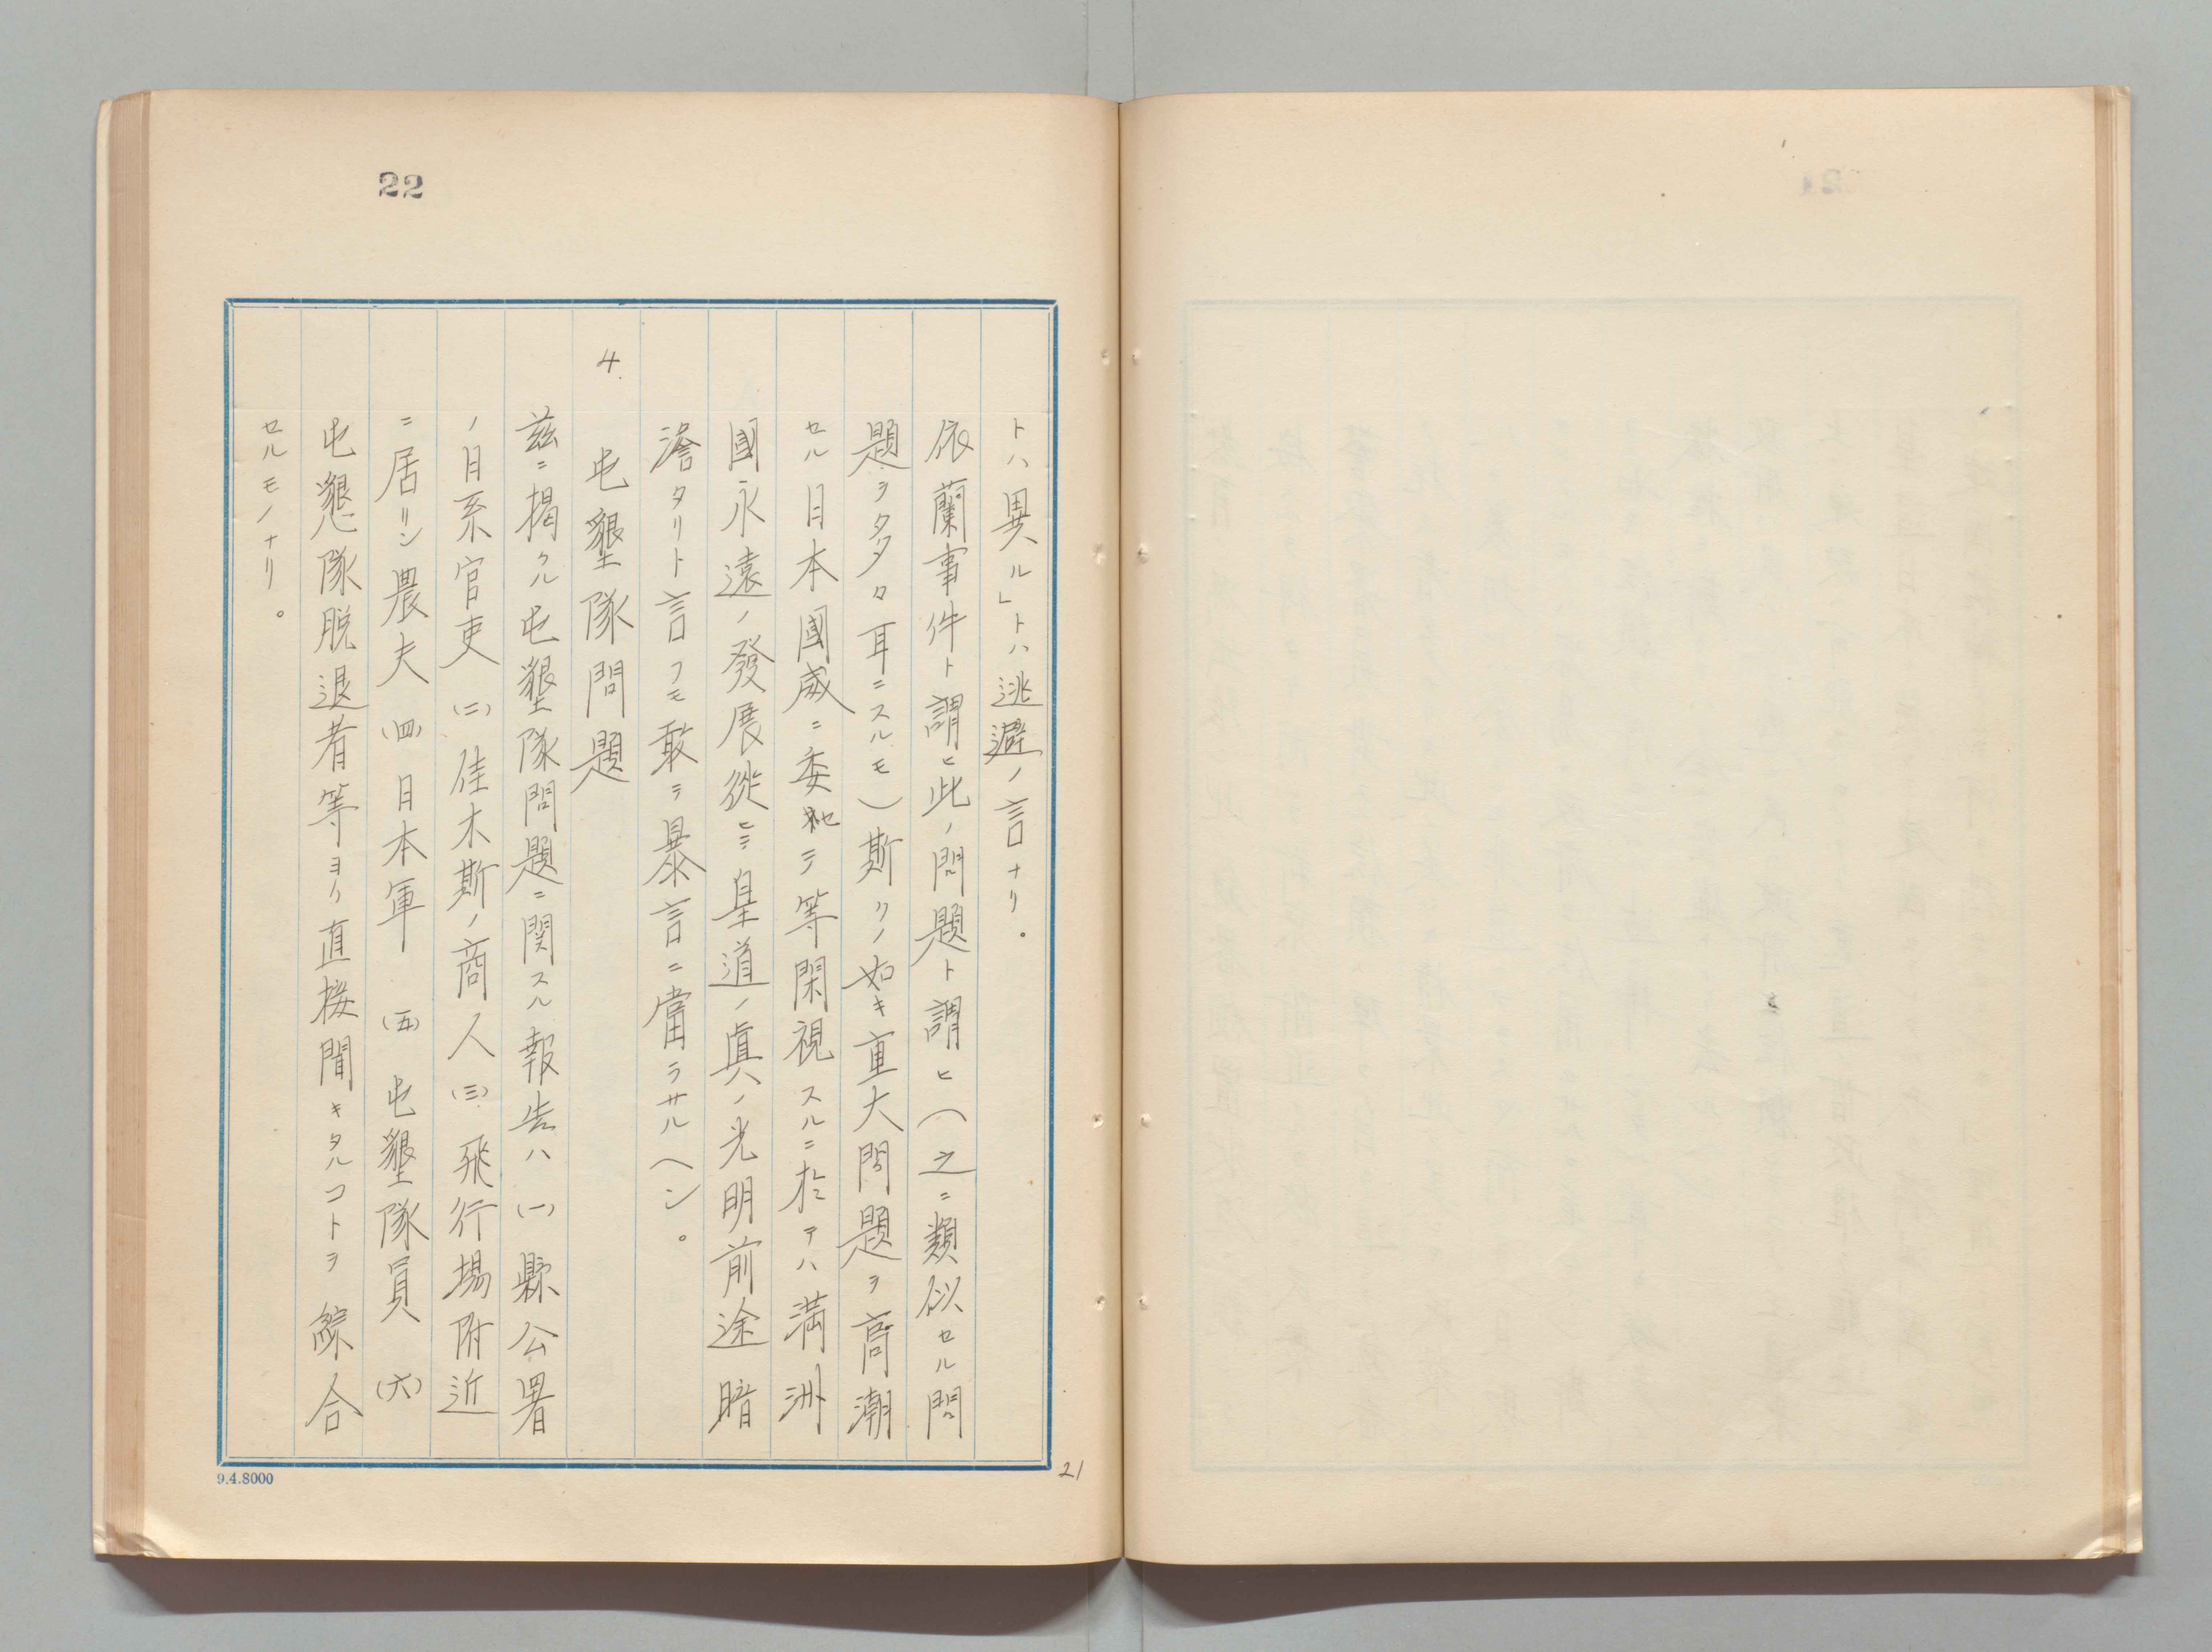 22
トハ異ル」トハ逃避ノ言ナリ。
依蘭事件ト謂ヒ此ノ問題ト謂ヒ(之ニ類似セル問
題ヲ多々耳ニスルモ)斯クノ如キ重大問題ヲ高潮
セル日本國威ニ委セ等閑視スルニ於テハ満洲
國永遠ノ發展從ニ皇道ノ眞ノ光明前途暗
澹タリト言フモ敢テ暴言ニ當ラサルヘシ。
4. 屯墾隊問題
茲ニ掲クル屯墾隊問題ニ関スル報告ハ(一)縣公署
ノ日系官吏(二)佳木斯ノ商人(三)飛行場附近
ニ居リシ農夫(四)日本軍(五)屯墾隊員(六)
屯懇隊脱退者等ヨリ直接聞キタルコトヲ綜合
セルモノナリ。
9.4.8000
21